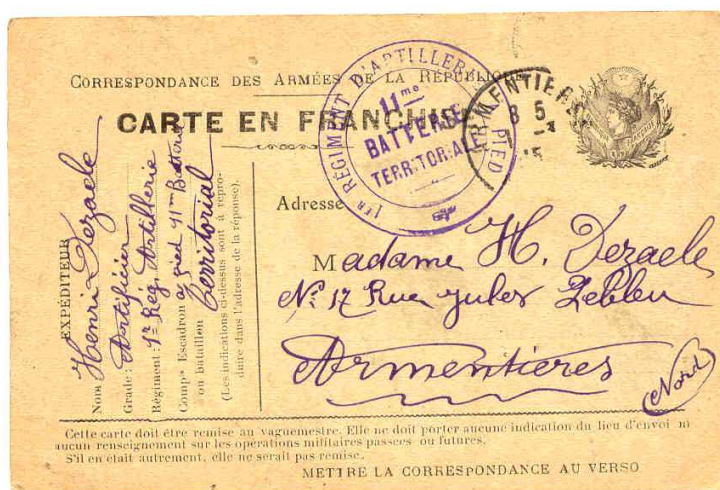 CORRESPONDANCE DES ARMÉES DE LA RÉPUBLIQUE
CARTE EN FRANCHISE
1ER RÉGIMENT D'ARTILLERIE À PIED
11me
BATTERIE
TERRITORIALE
ARMENTIERES
8 5
EXPÉDITEUR
Nom Henri Dezaele
Grade: Artificier
Régiment: 1er Rég. Artillerie
Compie Escadron à pied 11me Batterie
ou bataillon Territorial
(Les indications ci-dessus sont à repro-
duire dans l'adresse de la réponse).
Adresse
Madame H. Dezaele
No 17 Rue Jules Lebleu
Armentières
(Nord)
Cette carte doit être remise au vaguemestre. Elle ne doit porter aucune indication du lieu d'envoi ni
aucun renseignement sur les opérations militaires passées ou futures.
S'il en était autrement, elle ne serait pas remise.
METTRE LA CORRESPONDANCE AU VERSO